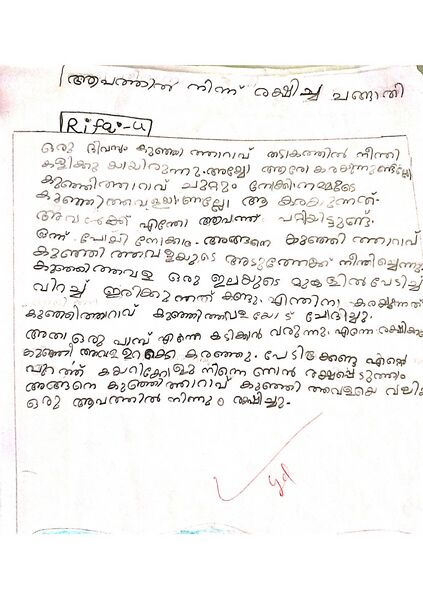 ആപത്തിൽ നിന്ന് രക്ഷിച്ച ചങ്ങാതി
Rifa-U
ഒരു ദിവസം കുഞ്ഞി ത്താറാവ് തടാകത്തിൽ നീന്തി
കളിക്കു യായിരുന്നു. അപ്പോ ആരോ കരയുന്നുണ്ടല്ലോ
കുഞ്ഞിത്താറാവ് ചുറ്റും നോക്കി നമ്മുടെ
കുഞ്ഞിത്തവളയാണല്ലോ ആ കരയുന്നത്.
അവൾക്ക് എന്തോ ആപത്ത് പറ്റിയിട്ടുണ്ട്.
ഒന്ന് പോയി നോക്കാം. അങ്ങനെ കുഞ്ഞി ത്താറാവ്
കുഞ്ഞി ത്തവളയുടെ അടുത്തേക്ക് നീന്തിച്ചെന്നു.
കുഞ്ഞിത്തവള ഒരു ഇലയുടെ മുകളിൽ പേടിച്ച്
വിറച്ച് ഇരിക്കുന്നത് കണ്ടു. എന്തിനാ കരയുന്നത്
കുഞ്ഞിത്താറാവ് കുഞ്ഞിത്തവള യോട് ചോദിച്ചു.
അതാ ഒരു പാമ്പ് എന്നെ കടിക്കാൻ വരുന്നു. എന്നെ രക്ഷിക്കൂ
കുഞ്ഞി തവള ഉറക്കെ കരഞ്ഞു. പേടിക്കേണ്ട എന്റെ
പുറത്ത് കയറിക്കോളൂ നിന്നെ ഞാൻ രക്ഷപ്പെടുത്താം
അങ്ങനെ കുഞ്ഞിത്താറാവ് കുഞ്ഞി ത്തവളയെ വലിയ
ഒരു ആപത്തിൽ നിന്നും രക്ഷിച്ചു.
gd